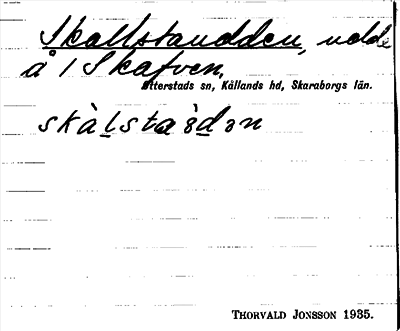 Skallstaudden, udde
å / Skafven.
Otterstads sn, Kållands hd, Skaraborgs län.
skàḷstaùdən
THORVALD JONSSON 1935.